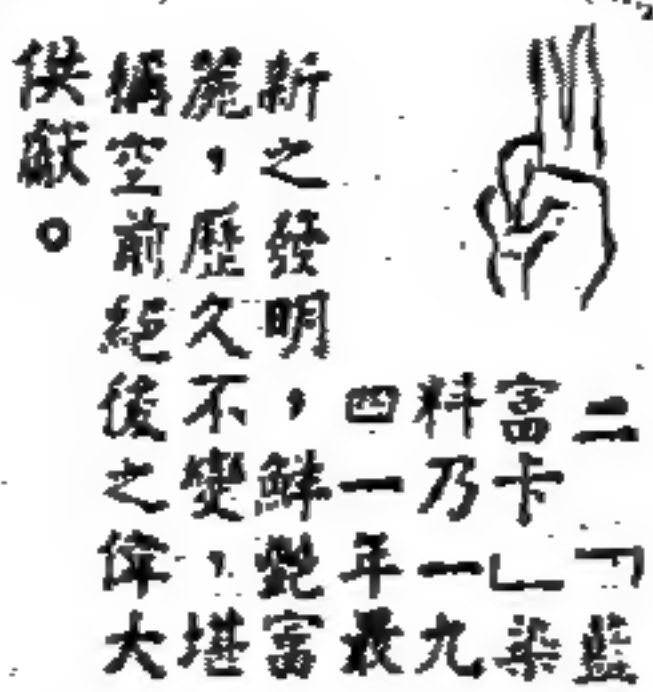 二「藍
富卡」染
料乃一九
四一年最
新之發明，鮮艷富
麗，歷久不變，堪
稱空前絕後之偉大
供獻。